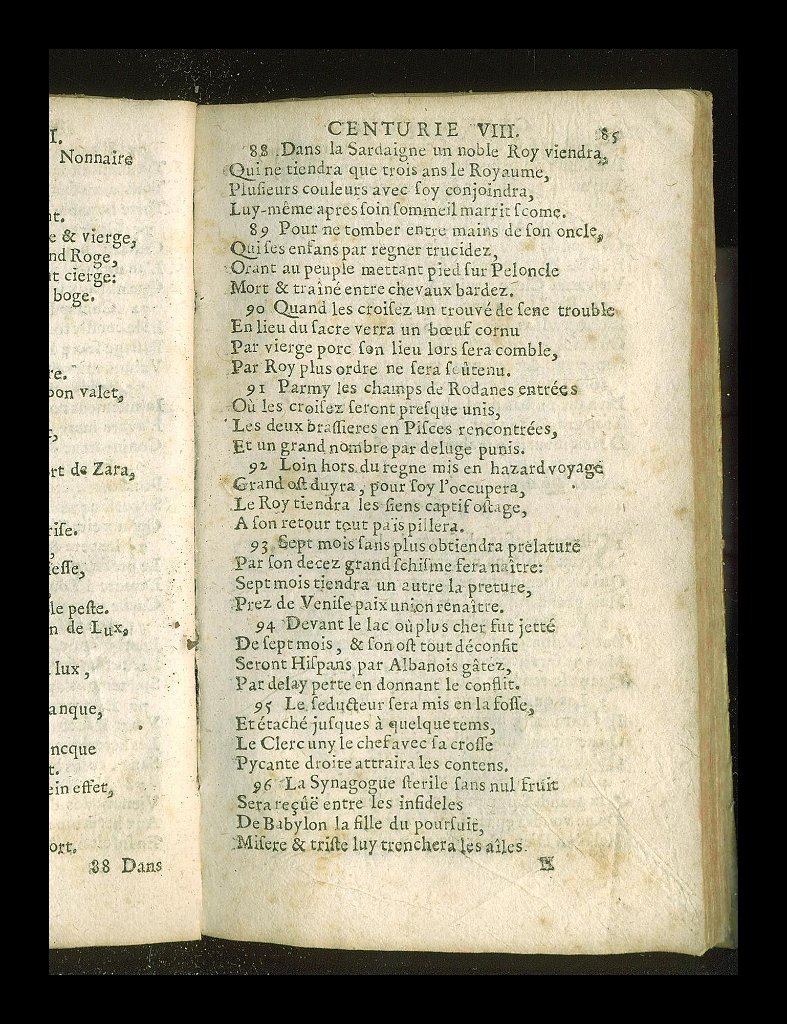 I.
Nonnaire
nt.
e & vierge,
nd Roge,
t cierge:
boge.
re.
bon valet,
rt de Zara,
rise.
fesse,
le peste.
n de Lux,
lux,
anque,
ncque
t.
ein effet,
ort.
88 Dans
CENTURIE VIII. 85
88 Dans la Sardaigne un noble Roy viendra,
Qui ne tiendra que trois ans le Royaume,
Plusieurs couleurs avec soy conjoindra,
Luy-même apres soin sommeil marrit scome.
89 Pour ne tomber entre mains de son oncle,
Qui ses enfans par regner trucidez,
Orant au peuple mettant pied sur Peloncle
Mort & traîné entre chevaux bardez.
90 Quand les croisez un trouvé de sene trouble
En lieu du sacre verra un bœuf cornu
Par vierge porc son lieu lors sera comble,
Par Roy plus ordre ne sera soûtenu.
91 Parmy les champs de Rodanes entrées
Où les croisez seront presque unis,
Les deux brassieres en Pisces rencontrées,
Et un grand nombre par deluge punis.
92 Loin hors du regne mis en hazard voyage
Grand ost duyra, pour soy l'occupera,
Le Roy tiendra les siens captif ostage,
A son retour tout païs pillera.
93 Sept mois sans plus obtiendra prelature
Par son decez grand schisme fera naître:
Sept mois tiendra un autre la preture,
Prez de Venise paix union renaître.
94 Devant le lac où plus cher fut jetté
De sept mois, & son ost tout déconfit
Seront Hispans par Albanois gâtez,
Par delay perte en donnant le conflit.
95 Le seducteur sera mis en la fosse,
Et étaché jusques à quelque tems,
Le Clerc uny le chef avec sa crosse
Pycante droite attraira les contens.
96 La Synagogue sterile sans nul fruit
Sera reçûë entre les infideles
De Babylon la fille du poursuit,
Misere & triste luy trenchera les aîles.